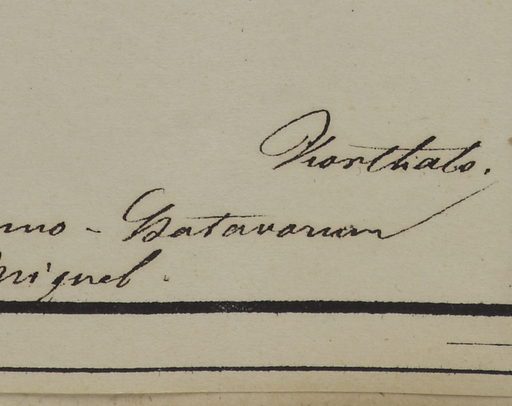 Korthals.
nno - Batavarum
Miquel.